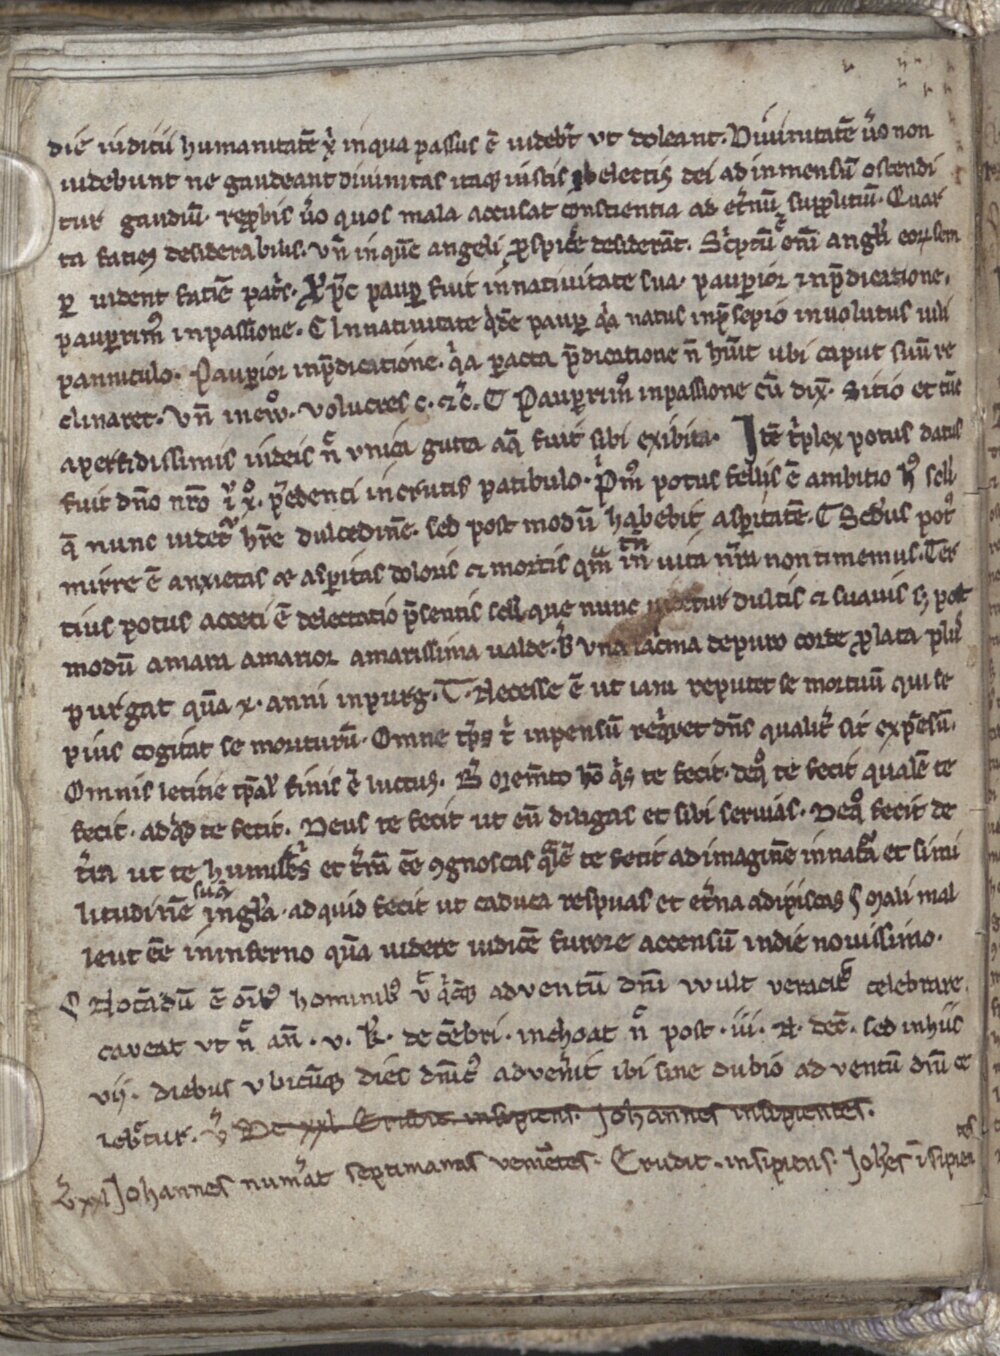 die iudicii humanitatē xͥ in qua passus ē uidebt̄ ut doleant. Diuinitatē ūo non
uidebunt ne gaudeant diuinitas itaq; iustis electis dei ad inmensū ostendi
tur gaudiū. rep̱bis ūo quos mala accusat conscientia ad et̄nū suppliciū. Quar
ta facies desiderabilis. vn̄ in quē angeli ꝓspicē desiderāt. Sc̄ptū ē om̄i angl̄i eoꝝ sem
ꝑ uident faciē patͥs. Xp̄c paupꝑ fuit in natiuitate sua. paupior in p̄dicatione.
paupimꝰ in passione. C In natiuitate qͥdē paupꝑ qͥa natus in p̄sepio inuolutus uili
panniculo. Paupior in p̄dicatione. qͥa ꝑacta p̄dicatione n̄ hūit ubi caput suū re
clinaret. Vn̄ in ew̄. uolucres c. ⁊c̄. C Paupimꝰ in passione cū dix̄. Sitio et cū
a perfidissimis iudeis n̄ unica gutta aq̄ fuit sibi exibita. Itē tͥplex potus datus
fuit dn̄o nr̄o iͮ xͦ. p̄edenti in crucis patibulo. Pͥmꝰ potus fellis ē ambitio hꝰ sell̄
q̄ nunc uidet᷑ hr̄e dulcedinē. sed post modū habebit aspitatē. C Sed̄us potꝰ
mirre ē anxietas ⁊ aspitas doloris ⁊ mortis qm̄ in uita nr̄a non timemus. Ter
tius potus acceti ē delectatio p̄sentis sell̄ que nunc uidetur dulcis ⁊ suauis sꝫ post
modū amara amarior amarissima ualde. B̄ Vna lac̄ma de puro corde ꝓlata plꝰ
purgat quā x. anni in purḡ. C. Necesse ē ut iam reputet se mortuū qui se
pius cogitat se moriturū. Omne tp̄s tͥ inpensū reqͥret dn̄s qualit᷑ sit expēsū.
Omnis leticie tp̄al̄ finis ē luctus. B̄ Mem̄to hō qͥs te fecit. deqͦ te fecit qualē te
fecit. ad qͥd te fecit. Deus te fecit ut eū diligas et sibi seruias. Deqͦ fecit de
tr̄a ut te humiliēs et tr̄ā eē ꝯgnoscas qͣlē te fecit ad imaginē innatā et simi
litudinē suā in gl̄a. ad quid fecit ut caduca respuas et et̄na adipiscas. Mali mal
lent eē in inferno quā uidere iudicē furore accensū in die nouissimo.
C Notādū ē oīb; hominib; ū qͥcūq; aduentū dn̄i wult ueracit᷑ celebrare.
caueat ut n̄ an̄. v. k̄. decēbri. inchoat n̄ post. iii. N̄. decē. sed in hiis
vii. diebus vbicūq; dies dn̄icꝰ aduen̄it ibi sine dubio aduentū dn̄i ce
lebͣtur. v̄ De xxl Erudit insipiens. Johannes insipientes.
Lxxl Johannes num̄at septimanas ueniētes. Erudit. insipiens. Joh̄es īsipien
tes